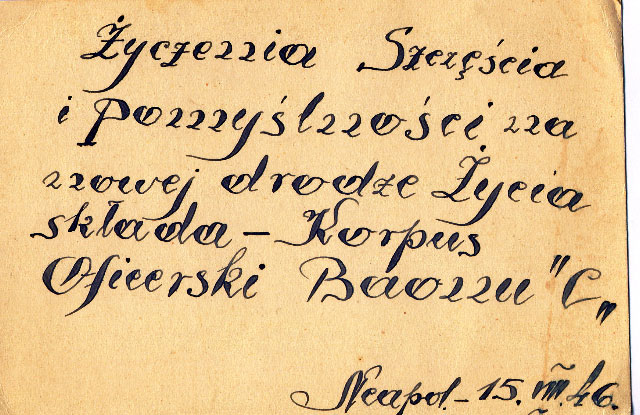 Życzenia Szczęścia
i pomyślności na
nowej drodze Życia
składa – Korpus
Oficerski Baonu "C"
Neapol. – 15. VIII. 46.